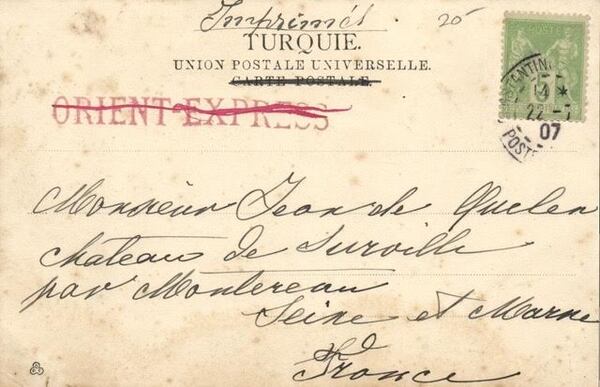 Imprimés
20
TURQUIE.
UNION POSTALE UNIVERSELLE.
CARTE POSTALE.
ORIENT-EXPRESS
POSTE
22-7
07
POSTE
Monsieur Jean de Quelen
chateau de Surville
par Montereau
Seine et Marne
France